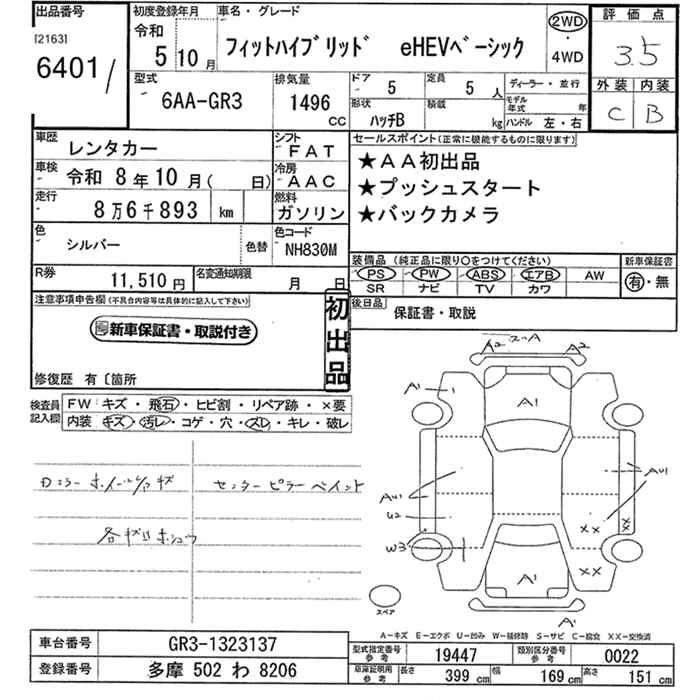 出品番号
[2163]
6401/
初度登録年月
令和
5 10月
車名・グレード
フィットハイブリッド eHEVベーシック
2WD
・
4WD
評価点
3.5
外装 内装
C B
型式
6AA-GR3
排気量
1496
CC
ドア
5
定員
5人
形状
ハッチB
積載
kg
ディーラー・並行
モデル年式 年
ハンドル 左・右
車歴
レンタカー
シフト
FAT
車検
令和 8年10月( 日)
冷房
AAC
走行
8万6千893 km
燃料
ガソリン
色
シルバー
色替
色コード
NH830M
R券
11,510円
名変通知期限
月 日
セールスポイント(正常に機能するものに限ります)
★AA初出品
★プッシュスタート
★バックカメラ
装備品 (純正品に限り○をつけてください)
PS PW ABS エアB AW
SR ナビ TV カワ
新車保証書
有・無
後日品
保証書・取説
注意事項申告欄(不具合内容等は具体的に記入して下さい)
新車保証書・取説付き
初出品
修復歴 有〔箇所
検査員記入欄
FW:キズ・飛石・ヒビ割・リペア跡・×要
内装:キズ・汚レ・コゲ・穴・スレ・キレ・破レ
センターピラーペイント
A2 A2
A1
A1
AU1
U2
W3
AU1
××
×
××
A1
A1
スペア
A-キズ E-エクボ U-凹み W-補修跡 S-サビ C-腐食 XX-交換済
車台番号
GR3-1323137
登録番号
多摩 502 わ 8206
型式指定番号
参考
19447
類別区分番号
参考
0022
車庫証明用
参考
長さ 399 cm 幅 169 cm 高さ 151 cm